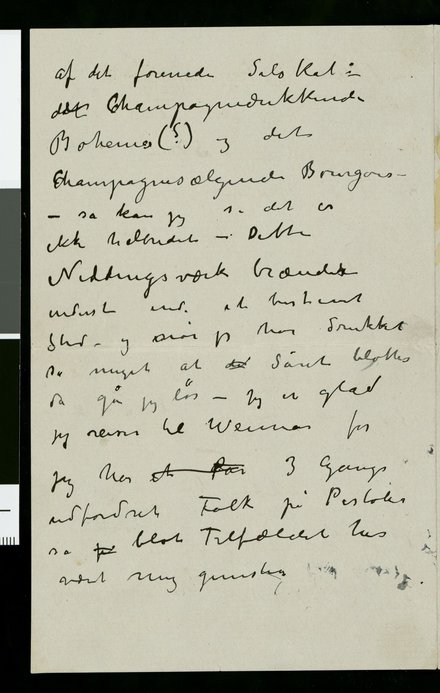 af det forenede Selskab :
det Champagnedrikkende
Boheme (?) og det
Champagnesælgende Bourgois-
– så kan jeg se det er
ikke helbredet – Dette
Niddingsværk brænder
inderst inde. et bestemt
Sted – og når jeg har drukket
så meget at Såret blottes
da går jeg løs – jeg er glad
jeg reiser til Weimar for
jeg har et par 3 Gange
udfordret Folk på Pistoler
så blot Tilfældet har
været mig gunstig